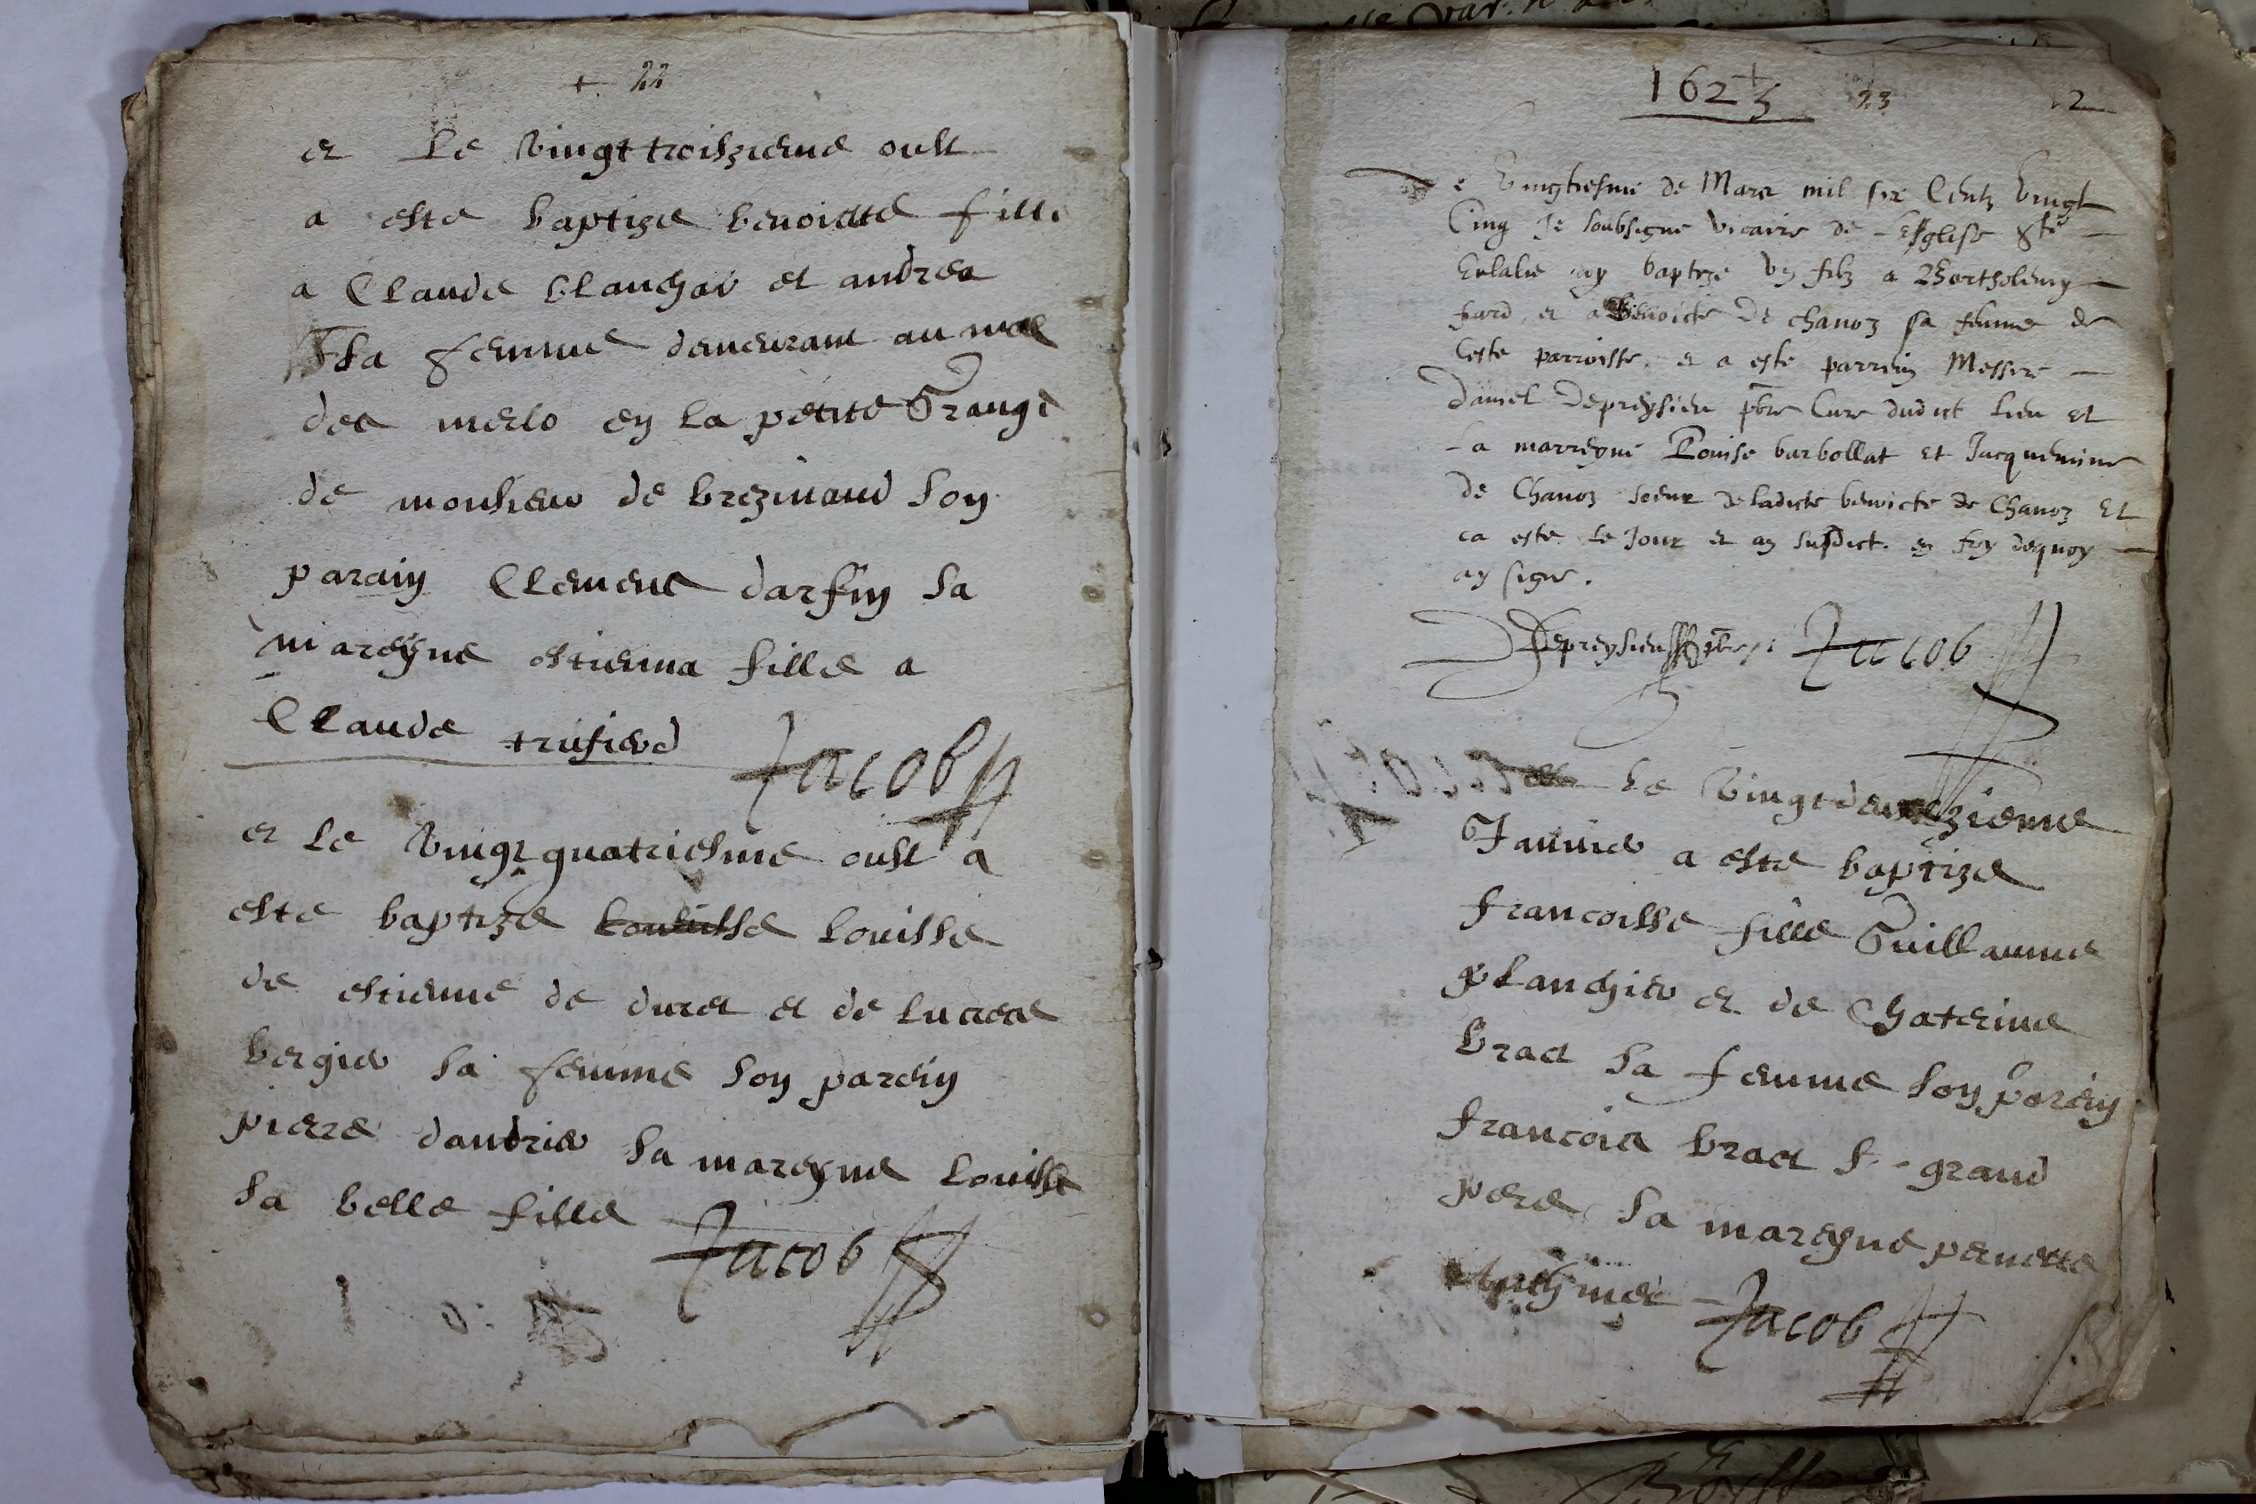 + 22
et Le vingt troiszieme oust
a este baptize benoicte fille
a Claude blanchar et andrea
sa femme demeurant au mas
des merlo en la petite Grange
de monsieur de brezinaud son
parain Clement darfin sa
mareyne estienna fille a
Claude
Jacob
et Le vingt quatriesme oust a
este baptize Louisse
de estienne de duret et de lucresse
bergier sa femme son parein
piere dandrie sa mareyne Louisse
sa belle fille
Jacob
1625 23 2
e vingtiesme de Mars mil six Centz vingt
Cinq Je soubsigne vicaire de Esglise Ste
Eulalie ay baptize un filz a Bartholemy
fard et a Benoicte de chanoz sa femme de
Ceste parroisse. et a este parrein Messire
daniel depreysieu pbre Cure dudict lieu et
La marreyne Louise barbollat et Jacquemine
de Chanoz soeur de ladicte benoicte de Chanoz Et
ca este le Jour et an susdict. en foy dequoy
ay signe.
Depreysieu pbre Jacob
Le vingt deuxzieme
Janvier a este baptize
francoisse fille Guillaume
planchier et de Chaterine
bract sa femme son parein
francois bract s grand
pere sa mareyne pernette
Jacob